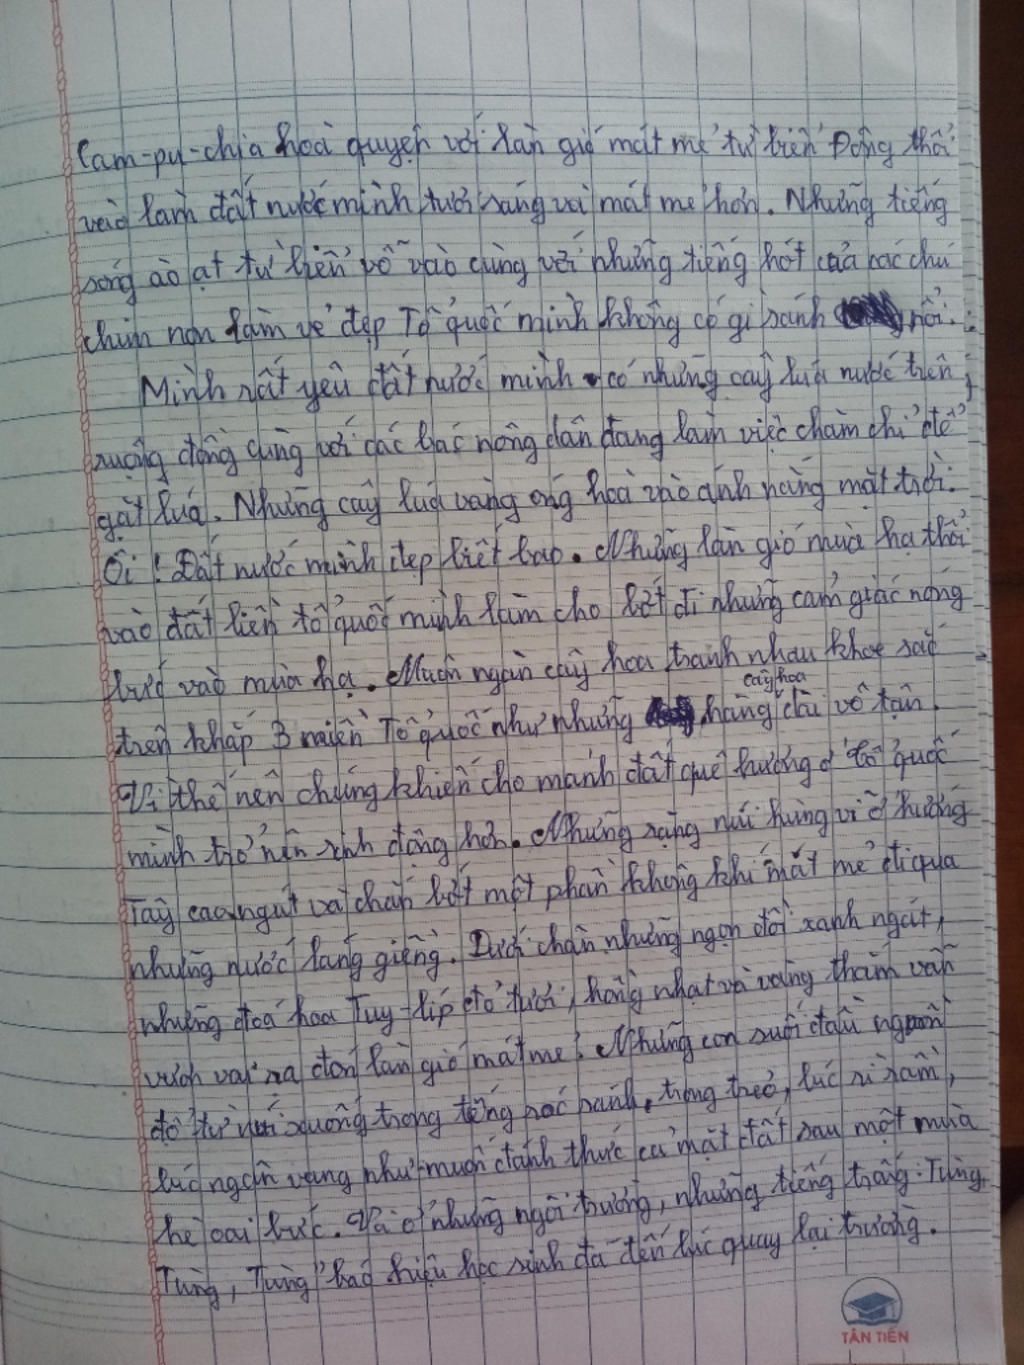 Cam-pu-chia hoà quyện với làn gió mát mẻ từ biển Đông thổi
vào làm đất nước mình tươi sáng và mát mẻ hơn. Những tiếng
sóng ào ạt từ biển vỗ vào cùng với những tiếng hót của các chú
chim non làm vẻ đẹp Tổ quốc mình không có gì sánh nổi.
Mình rất yêu đất nước mình có những cây lúa nước trên
ruộng đồng cùng với các bác nông dân đang làm việc chăm chỉ để
gặt lúa. Những cây lúa vàng óng hoà vào ánh nắng mặt trời.
Ôi! Đất nước mình đẹp biết bao. Những làn gió mùa hạ thổi
vào đất liền tổ quốc mình làm cho bớt đi những cảm giác nóng
bức vào mùa hạ. Muôn ngàn cây hoa tranh nhau khoe sắc
cây hoa
trên khắp 3 miền Tổ quốc như những hàng dài vô tận.
Vì thế nên chúng khiến cho mảnh đất quê hương ở tổ quốc
mình trở nên sinh động hơn. Những rặng núi hùng vĩ ở hướng
Tây cao ngút và chắn bớt một phần không khí mát mẻ đi qua
những nước láng giềng. Dưới chân những ngọn đồi xanh ngát,
những đoá hoa Tuy-líp đỏ tươi, hồng nhạt và vàng thẫm vẫn
vươn vai ra đón làn gió mát mẻ. Những con suối đầu nguồn
đổ từ núi xuống trong tiếng róc rách, trong trẻo, lúc rì rầm,
lúc ngân vang như muốn đánh thức cả mặt đất sau một mùa
hè oai bức. Và ở những ngôi trường, những tiếng trống: Tùng,
Tùng, Tùng báo hiệu học sinh đã đến lúc quay lại trường.
TÂN TIẾN